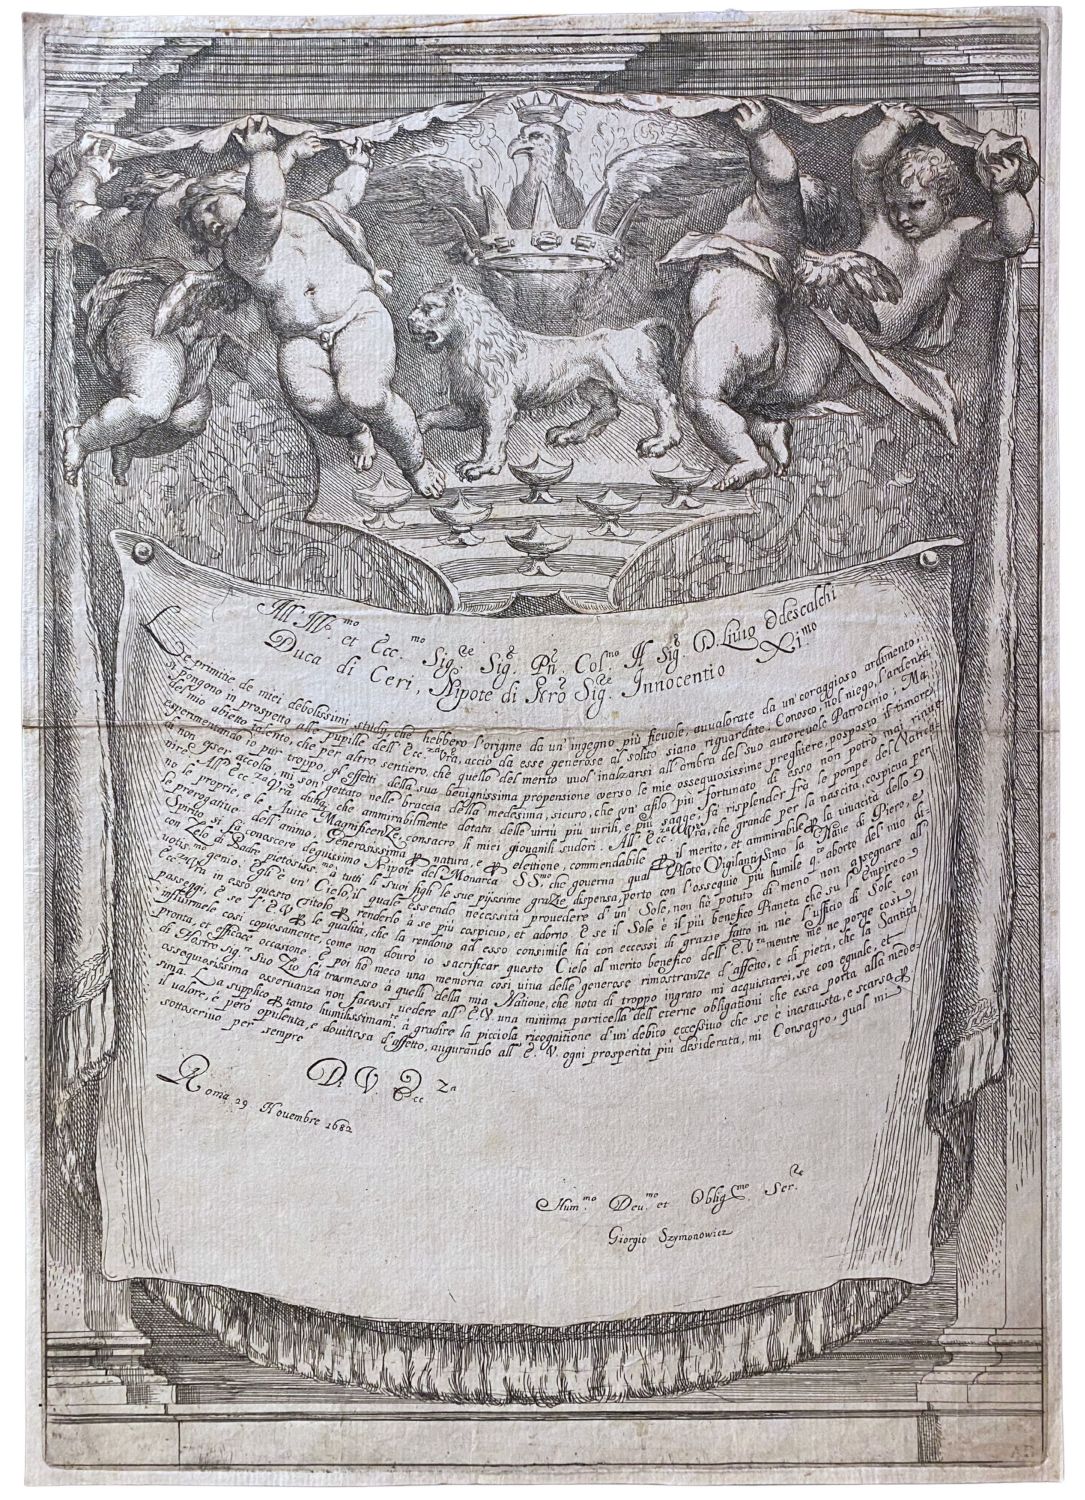 All Ill.mo et Ecc.mo Sig.re Sig.r Pn.r Col.mo Il Sig.r D. Liuio Odescalchi
Duca di Ceri, Nipote di Nro Sig.re Innocentio XI.mo
Le primitie de miei debolissimi study, che hebbero l'origine da un' ingegno più fievole, auualorate da un' coraggioso ardimento,
si pongono in prospetto alle pupille dell' Ecc.za Vra, acciò da esse generose al solito siano riguardate. Conosco, nol niego, l'ardenza
del mio abietto talento, che per altro sentiero, che quello del merito vuol' inalzarsi all' ombra del suo autoreuole Patrocinio, Ma
esperimentando io pur troppo gl' effetti della sua benignissima propensione verso le mie ossequiosissime preghiere, posposto il timore
di non esser accolto, mi son gettato nelle braccia della medesima, sicuro, che un' asilo più fortunato di esso non potrò mai rinue-
nire. All' Ecc.za Vra dunq, che ammirabilmente dotata delle virtù più virili, e più sagge, fà risplender frà le pompe del Vatica-
no le proprie, e le Auite Magnificenze, consacro li miei giouanili sudori. All' Ecc.za Vra, che grande per la nascita, cospicua per
le prerogatiue dell' animo, Generosissima p natura, e p elettione, commendabile p il merito, et ammirabile p la viuacità dello
Spirito, si fà conoscere degnissimo Nipote del Monarca SS.mo che gouerna qual Piloto Vigilantissimo la Naue di Piero, e
con Zelo di Padre pietosiss.mo à tutti li suoi figli le sue pijssime grazie dispensa, porto con l'ossequio più humile q.to aborto del mio di-
uotis.mo genio. Egli è un' Cielo, il quale essendo necessità prouedere d' un' Sole, non hò potuto di meno non assegnare all'
Ecc.za Vra in esso questo titolo p renderlo à se più cospicuo, et adorno. E se il Sole è il più benefico Pianeta che sù l'Empireo
passeggi, è se l'E.V. p le qualità, che la rendono ad esso consimile hà con eccessi di grazie fatto in me l'ufficio di Sole con
influirmele così copiosamente, come non dourò io sacrificar questo Cielo al merito benefico dell' E.Vra mentre me ne porge così
pronta, et efficace occasione. E poi hò meco una memoria così viua delle generose rimostranze d'affetto, e di pieta, che la Santità
di Nostro Sig.re suo Zio hà trasmesso à quelli della mia Natione, che nota di troppo ingrato mi acquistarei, se con eguale, et
ossequiosissima osseruanza non facessi vedere all' E.V. una minima particella dell' eterne obligationi che essa porta alla mede-
sima. La supplico p tanto humilissimam.te à gradire la picciola ricognitione d' un' debito eccessiuo che se è inesausta, e scarsa p
il valore, è però opulenta, e douitiosa d'affetto, augurando all' E.V. ogni prosperità più desiderata, mi Consagro, qual mi
sottoscriuo per sempre
Di V. Ecc.za
Roma 29 Nouembre 1682
Hum.mo Deu.mo et Oblig.mo Ser.re
Giorgio Szymonowicz